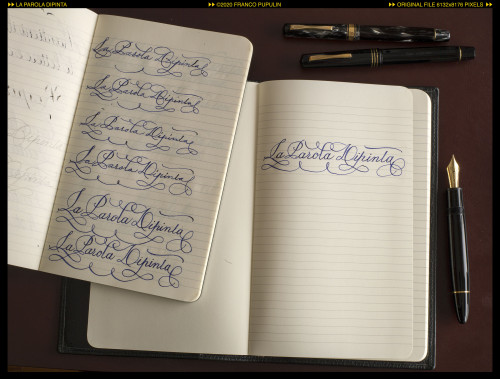 LA PAROLA DIPINTA
©2020 FRANCO PUPULIN
ORIGINAL FILE 8132x8176 PIXELS
La Parola Dipinta
La Parola Dipinta
La Parola Dipinta
La Parola Dipinta
La Parola Dipinta
La Parola Dipinta
La Parola Dipinta